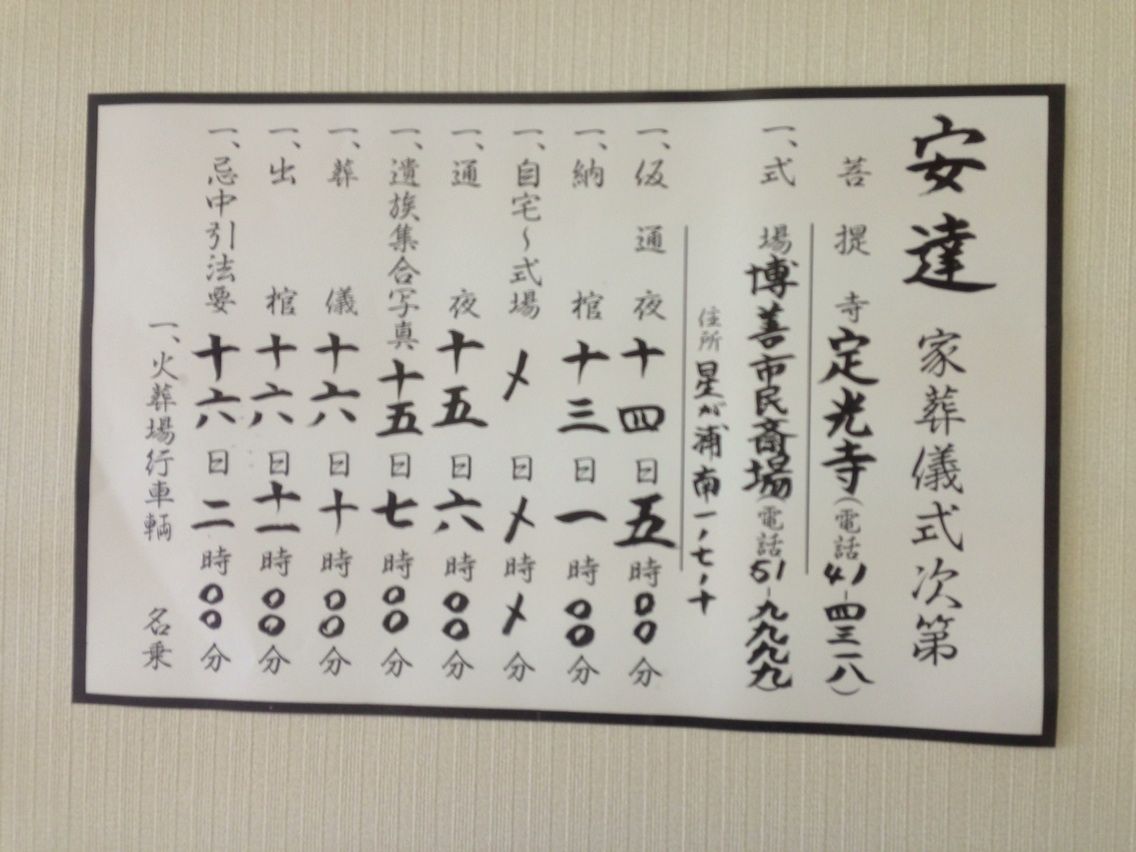 安達家葬儀式次第
菩提寺定光寺(電話41-四三一八)
一、式場博善市民斎場(電話51-九九九九)
住所星が浦南一ノ七ノ十
一、仮通夜十四日五時00分
一、納棺十三日一時00分
一、自宅〜式場〆日〆時〆分
一、通夜十五日六時00分
一、遺族集合写真十五日七時00分
一、葬儀十六日十時00分
一、出棺十六日十一時00分
一、忌中引法要十六日二時00分
一、火葬場行車輌 名乗